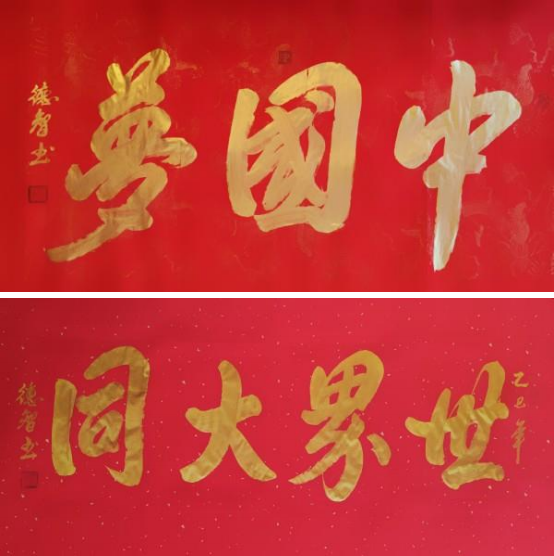 中國夢
德智书
乙巳年
世界大同
德智书